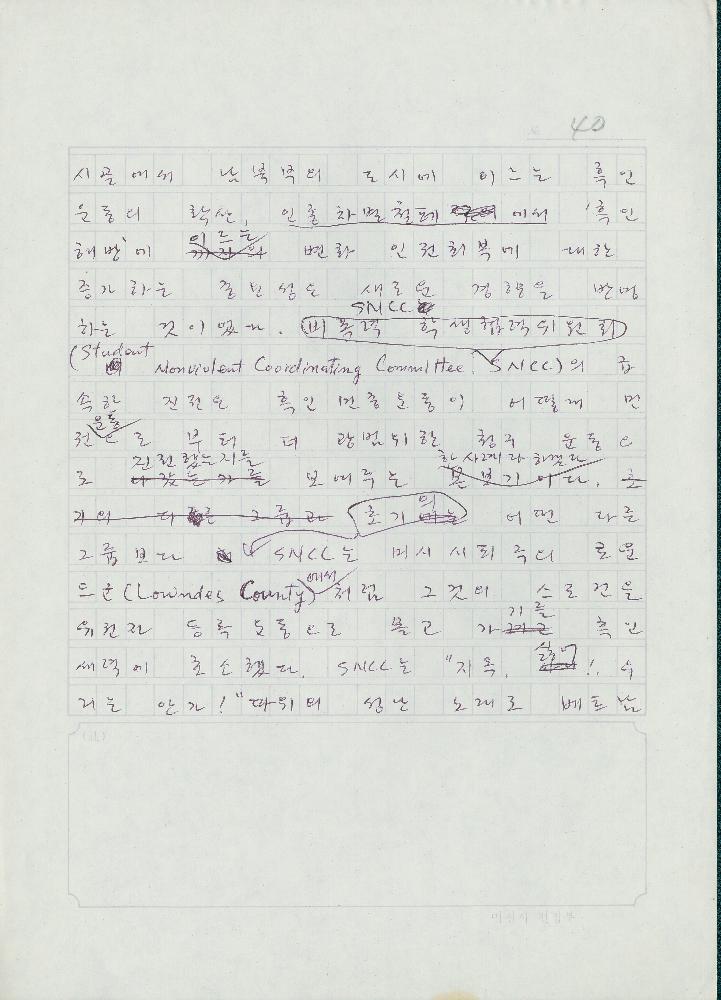 40
시골에서 남북벽의 도시에 이르는 흑인
운동의 확산, 인종차별철폐에서 '흑인
해방'에 이르는 변화 인권회복에 대한
증가하는 긴보성은 새로운 경향을 반영
하는 것이었다. SNCC 비폭력 학생협력위원회
(Student Nonviolent Coordinating Committee, SNCC)의 급
속한 진전은 흑인 민중운동이 어떻게 민
권운동으로부터 더 광범위한 정치 운동으
로 진전했는지를 보여주는 한 사례라 하겠다. 초
기의 다른 그룹과 초기의 어떤 다른
그룹보다 SNCC는 미시시피주의 로운
드군(Lowndes County)에서처럼 그것의 스로건을
유권자 등록운동으로 몰고 가기를 흑인
세력에 호소했다. SNCC는 "지옥, 싫어!, 우
리는 안가!" 따위의 성난 노래로 베트남